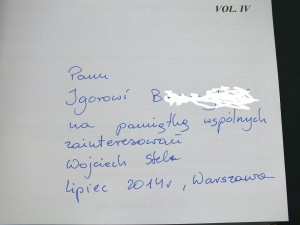 VOL. IV
Panu
Igorowi B
na pamiątkę wspólnych
zainteresowań
Wojciech Stela
lipiec 2014r, Warszawa